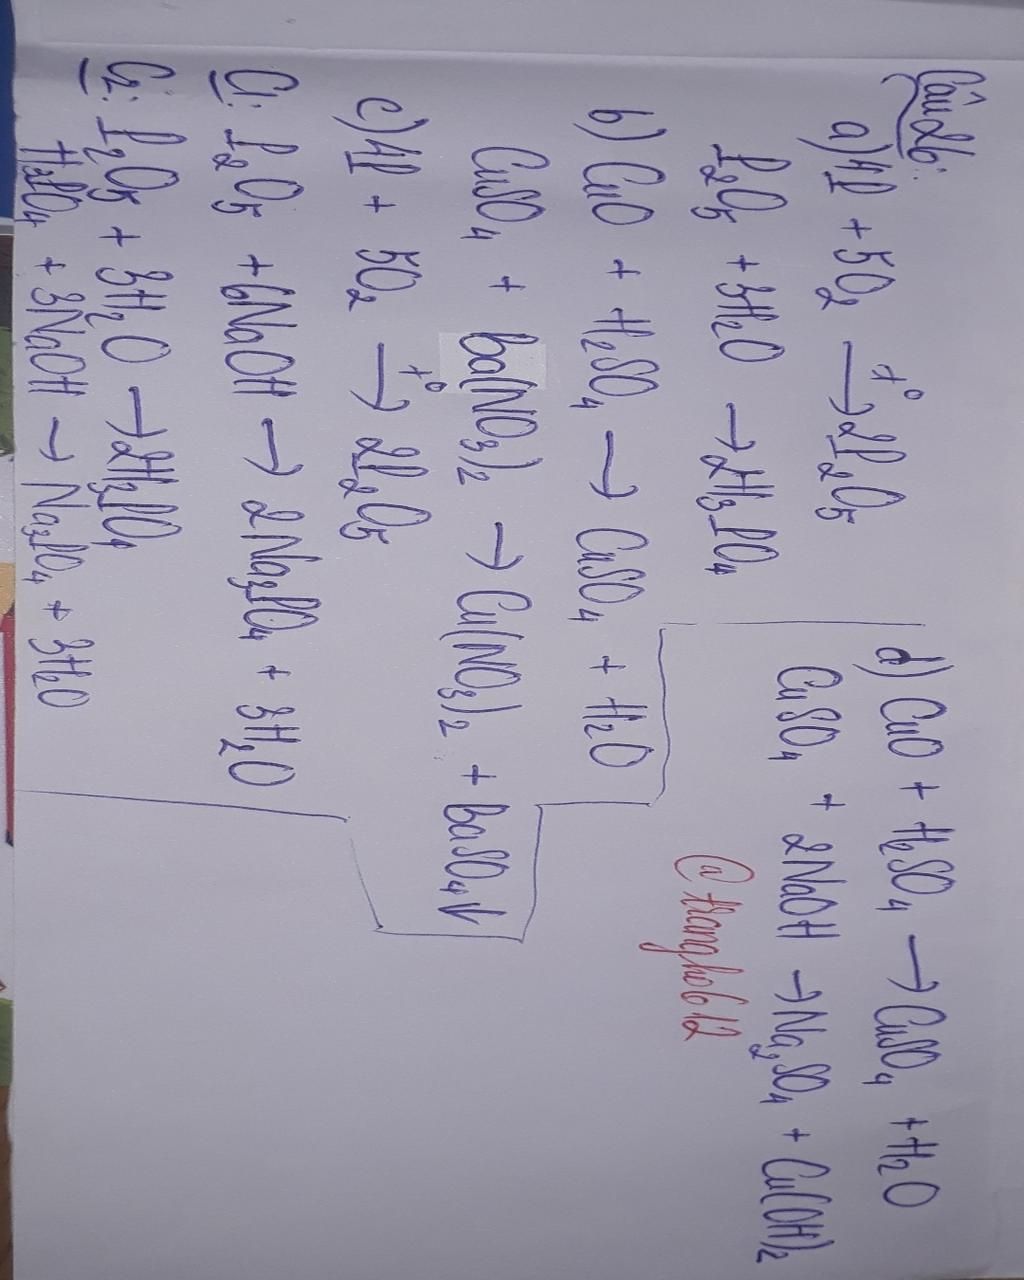 Câu 26:
a) 4P + 5O₂ →t° 2P₂O₅
P₂O₅ + 3H₂O → 2H₃PO₄
b) CuO + H₂SO₄ → CuSO₄ + H₂O
CuSO₄ + ba(NO₃)₂ → Cu(NO₃)₂ + baSO₄↓
c) 4P + 5O₂ →t° 2P₂O₅
C1: P₂O₅ + 6NaOH → 2Na₃PO₄ + 3H₂O
C2: P₂O₅ + 3H₂O → 2H₃PO₄
H₃PO₄ + 3NaOH → Na₃PO₄ + 3H₂O
d) CuO + H₂SO₄ → CuSO₄ + H₂O
CuSO₄ + 2NaOH → Na₂SO₄ + Cu(OH)₂
@trangho612